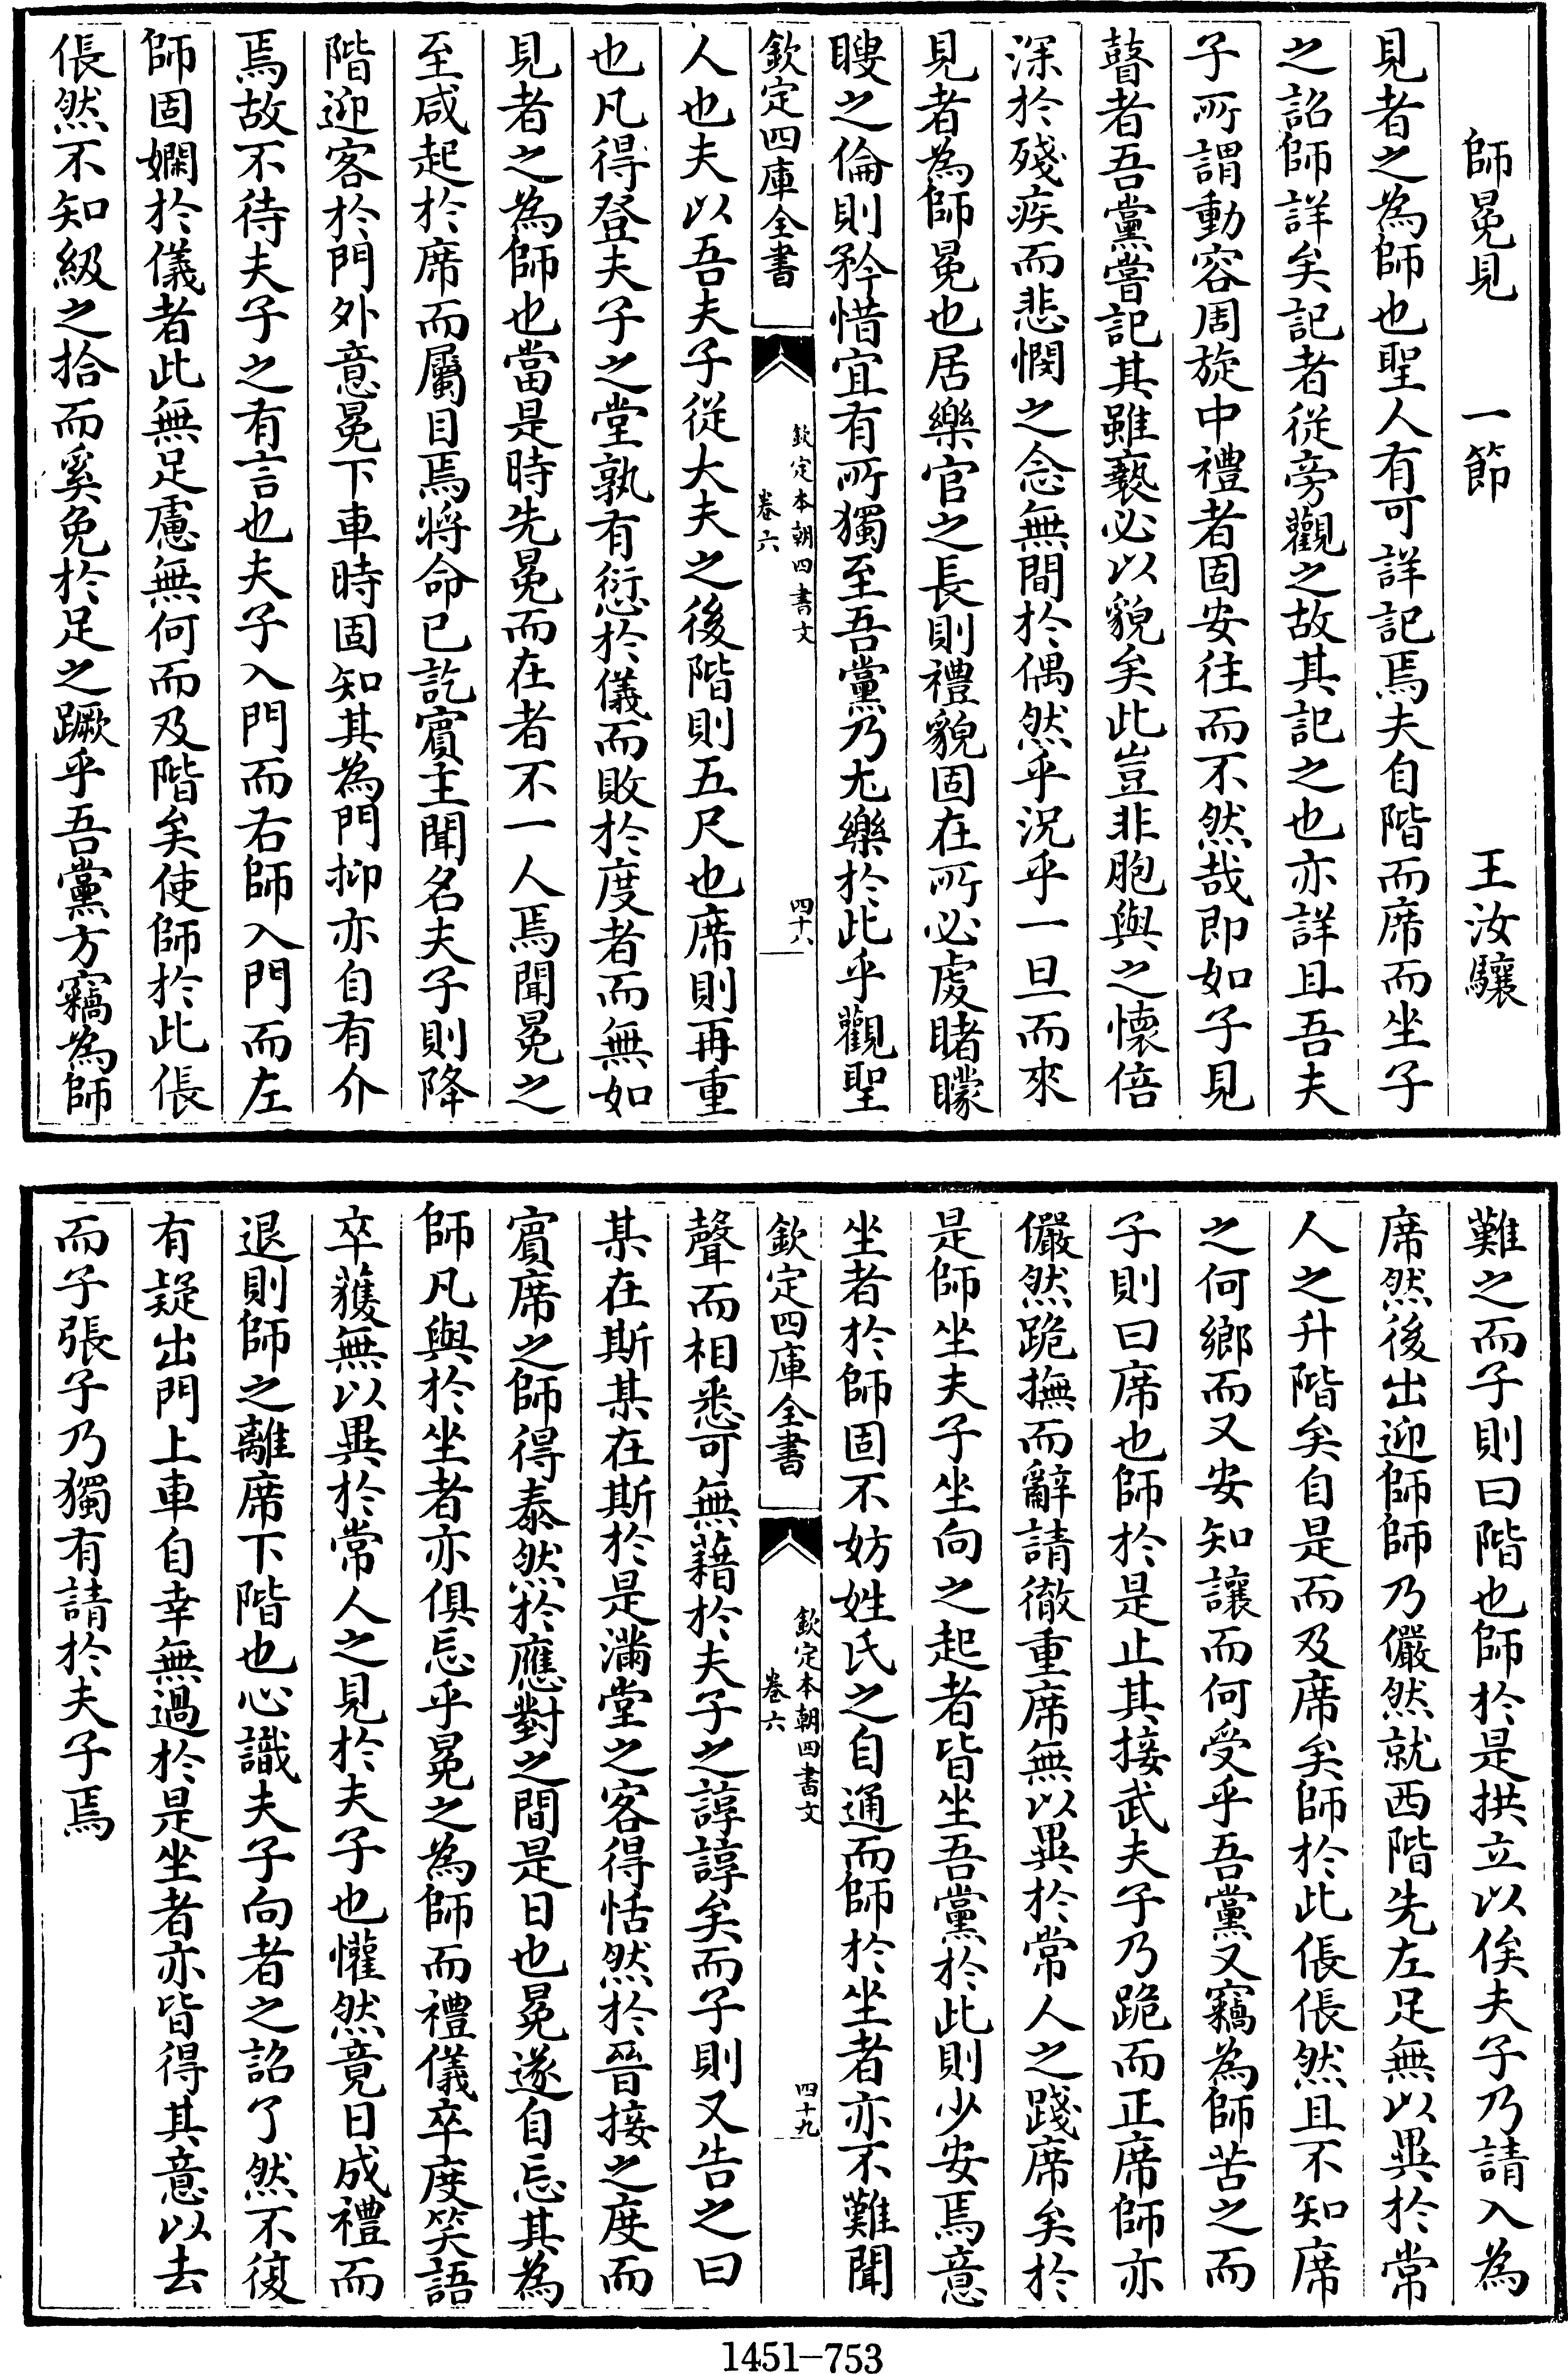 師冕見　一節　王汝驤
見者之為師也聖人有可詳記焉夫自階而席而坐子
之詔師詳矣記者從旁觀之故其記之也亦詳且吾夫
子所謂動容周旋中禮者固安往而不然哉即如子見
瞽者吾黨嘗記其雖褻必以貌矣此豈非胞與之懷倍
深於殘疾而悲憫之念無間於偶然乎況乎一旦而來
見者為師冕也居樂官之長則禮貌固在所必處睹矇
瞍之倫則矜惜宜有所獨至吾黨乃尤樂於此乎觀聖
欽定四庫全書
欽定本朝四書文
卷六
四十八
人也夫以吾夫子從大夫之後階則五尺也席則再重
也凡得登夫子之堂孰有愆於儀而敗於度者而無如
見者之為師也當是時先冕而在者不一人焉聞冕之
至咸起於席而屬目焉將命已訖賓主聞名夫子則降
階迎客於門外意冕下車時固知其為門抑亦自有介
焉故不待夫子之有言也夫子入門而右師入門而左
師固嫻於儀者此無足慮無何而及階矣使師於此倀
倀然不知級之拾而奚免於足之蹶乎吾黨方竊為師
難之而子則曰階也師於是拱立以俟夫子乃請入為
席然後出迎師師乃儼然就西階先左足無以異於常
人之升階矣自是而及席矣師於此倀倀然且不知席
之何鄉而又安知讓而何受乎吾黨又竊為師苦之而
子則曰席也師於是止其接武夫子乃跪而正席師亦
儼然跪撫而辭請徹重席無以異於常人之踐席矣於
是師坐夫子坐向之起者皆坐吾黨於此則少安焉意
坐者於師固不妨姓氏之自通而師於坐者亦不難聞
欽定四庫全書
欽定本朝四書文
卷六
四十九
聲而相悉可無藉於夫子之諄諄矣而子則又告之曰
某在斯某在斯於是滿堂之客得恬然於晉接之度而
賓席之師得泰然於應對之間是日也冕遂自忘其為
師凡與於坐者亦俱忘乎冕之為師而禮儀卒度笑語
卒獲無以異於常人之見於夫子也懽然竟日成禮而
退則師之離席下階也心識夫子向者之詔了然不復
有疑出門上車自幸無過於是坐者亦皆得其意以去
而子張子乃獨有請於夫子焉
1451-753